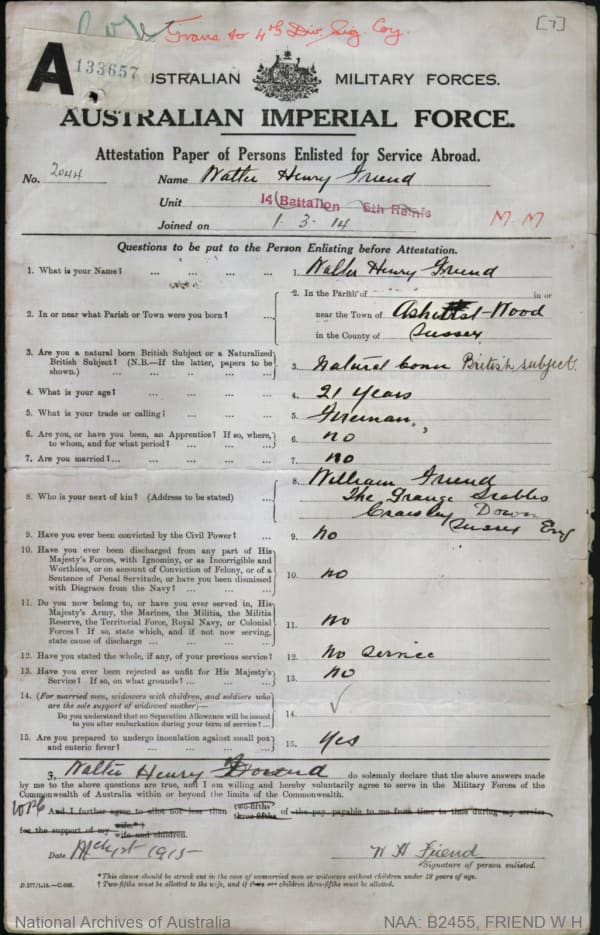 Trans to 4th Div. Sig. Coy.
[7]
A 133657
AUSTRALIAN MILITARY FORCES.
AUSTRALIAN IMPERIAL FORCE.
Attestation Paper of Persons Enlisted for Service Abroad.
No. 2044 Name Walter Henry Friend
Unit 14 Battalion 6th Reinfs
M.M
Joined on 1.3.14
Questions to be put to the Person Enlisting before Attestation.
1. What is your Name? ... ... ... ... 1. Walter Henry Friend
2. In or near what Parish or Town were you born? ... 2. In the Parish of in or
near the Town of Ashurst-Wood
in the County of Sussex
3. Are you a natural born British Subject or a Naturalized
British Subject? (N.B.—If the latter, papers to be
shown.) ... ... ... ... 3. Natural born British subject.
4. What is your age? ... ... ... ... 4. 21 years
5. What is your trade or calling? ... ... ... 5. Fireman
6. Are you, or have you been, an Apprentice? If so, where,
to whom, and for what period? ... ... ... 6. no
7. Are you married?... ... ... ... 7. no
8. Who is your next of kin? (Address to be stated) ... 8. William Friend
The Grange Stables
Crawley Down
Sussex Eng
9. Have you ever been convicted by the Civil Power? ... 9. no
10. Have you ever been discharged from any part of His
Majesty's Forces, with Ignominy, or as Incorrigible and
Worthless, or on account of Conviction of Felony, or of a
Sentence of Penal Servitude, or have you been dismissed
with Disgrace from the Navy? ... ... ... 10. no
11. Do you now belong to, or have you ever served in, His
Majesty's Army, the Marines, the Militia, the Militia
Reserve, the Territorial Force, Royal Navy, or Colonial
Forces? If so, state which, and if not now serving,
state cause of discharge ... ... ... 11. no
12. Have you stated the whole, if any, of your previous service? 12. No service
13. Have you ever been rejected as unfit for His Majesty's
Service? If so, on what grounds? ... ... ... 13. no
14. (For married men, widowers with children, and soldiers who
are the sole support of widowed mother)—
Do you understand that no Separation Allowance will be issued
to you after embarkation during your term of service? ... 14. ✓
15. Are you prepared to undergo inoculation against small pox
and enteric fever? ... ... ... ... 15. Yes
I, Walter Henry Friend do solemnly declare that the above answers made
by me to the above questions are true, and I am willing and hereby voluntarily agree to serve in the Military Forces of the
Commonwealth of Australia within or beyond the limits of the Commonwealth.
And I further agree to allot not less than two-fifths three-fifths of the pay payable to me from time to time during my service
for the support of my wife.*† wife and children.
Date 1915
W H Friend
Signature of person enlisted.
*This clause should be struck out in the case of unmarried men or widowers without children under 18 years of age.
† Two-fifths must be allotted to the wife, and if there are children three-fifths must be allotted.
National Archives of Australia
NAA: B2455, FRIEND W H